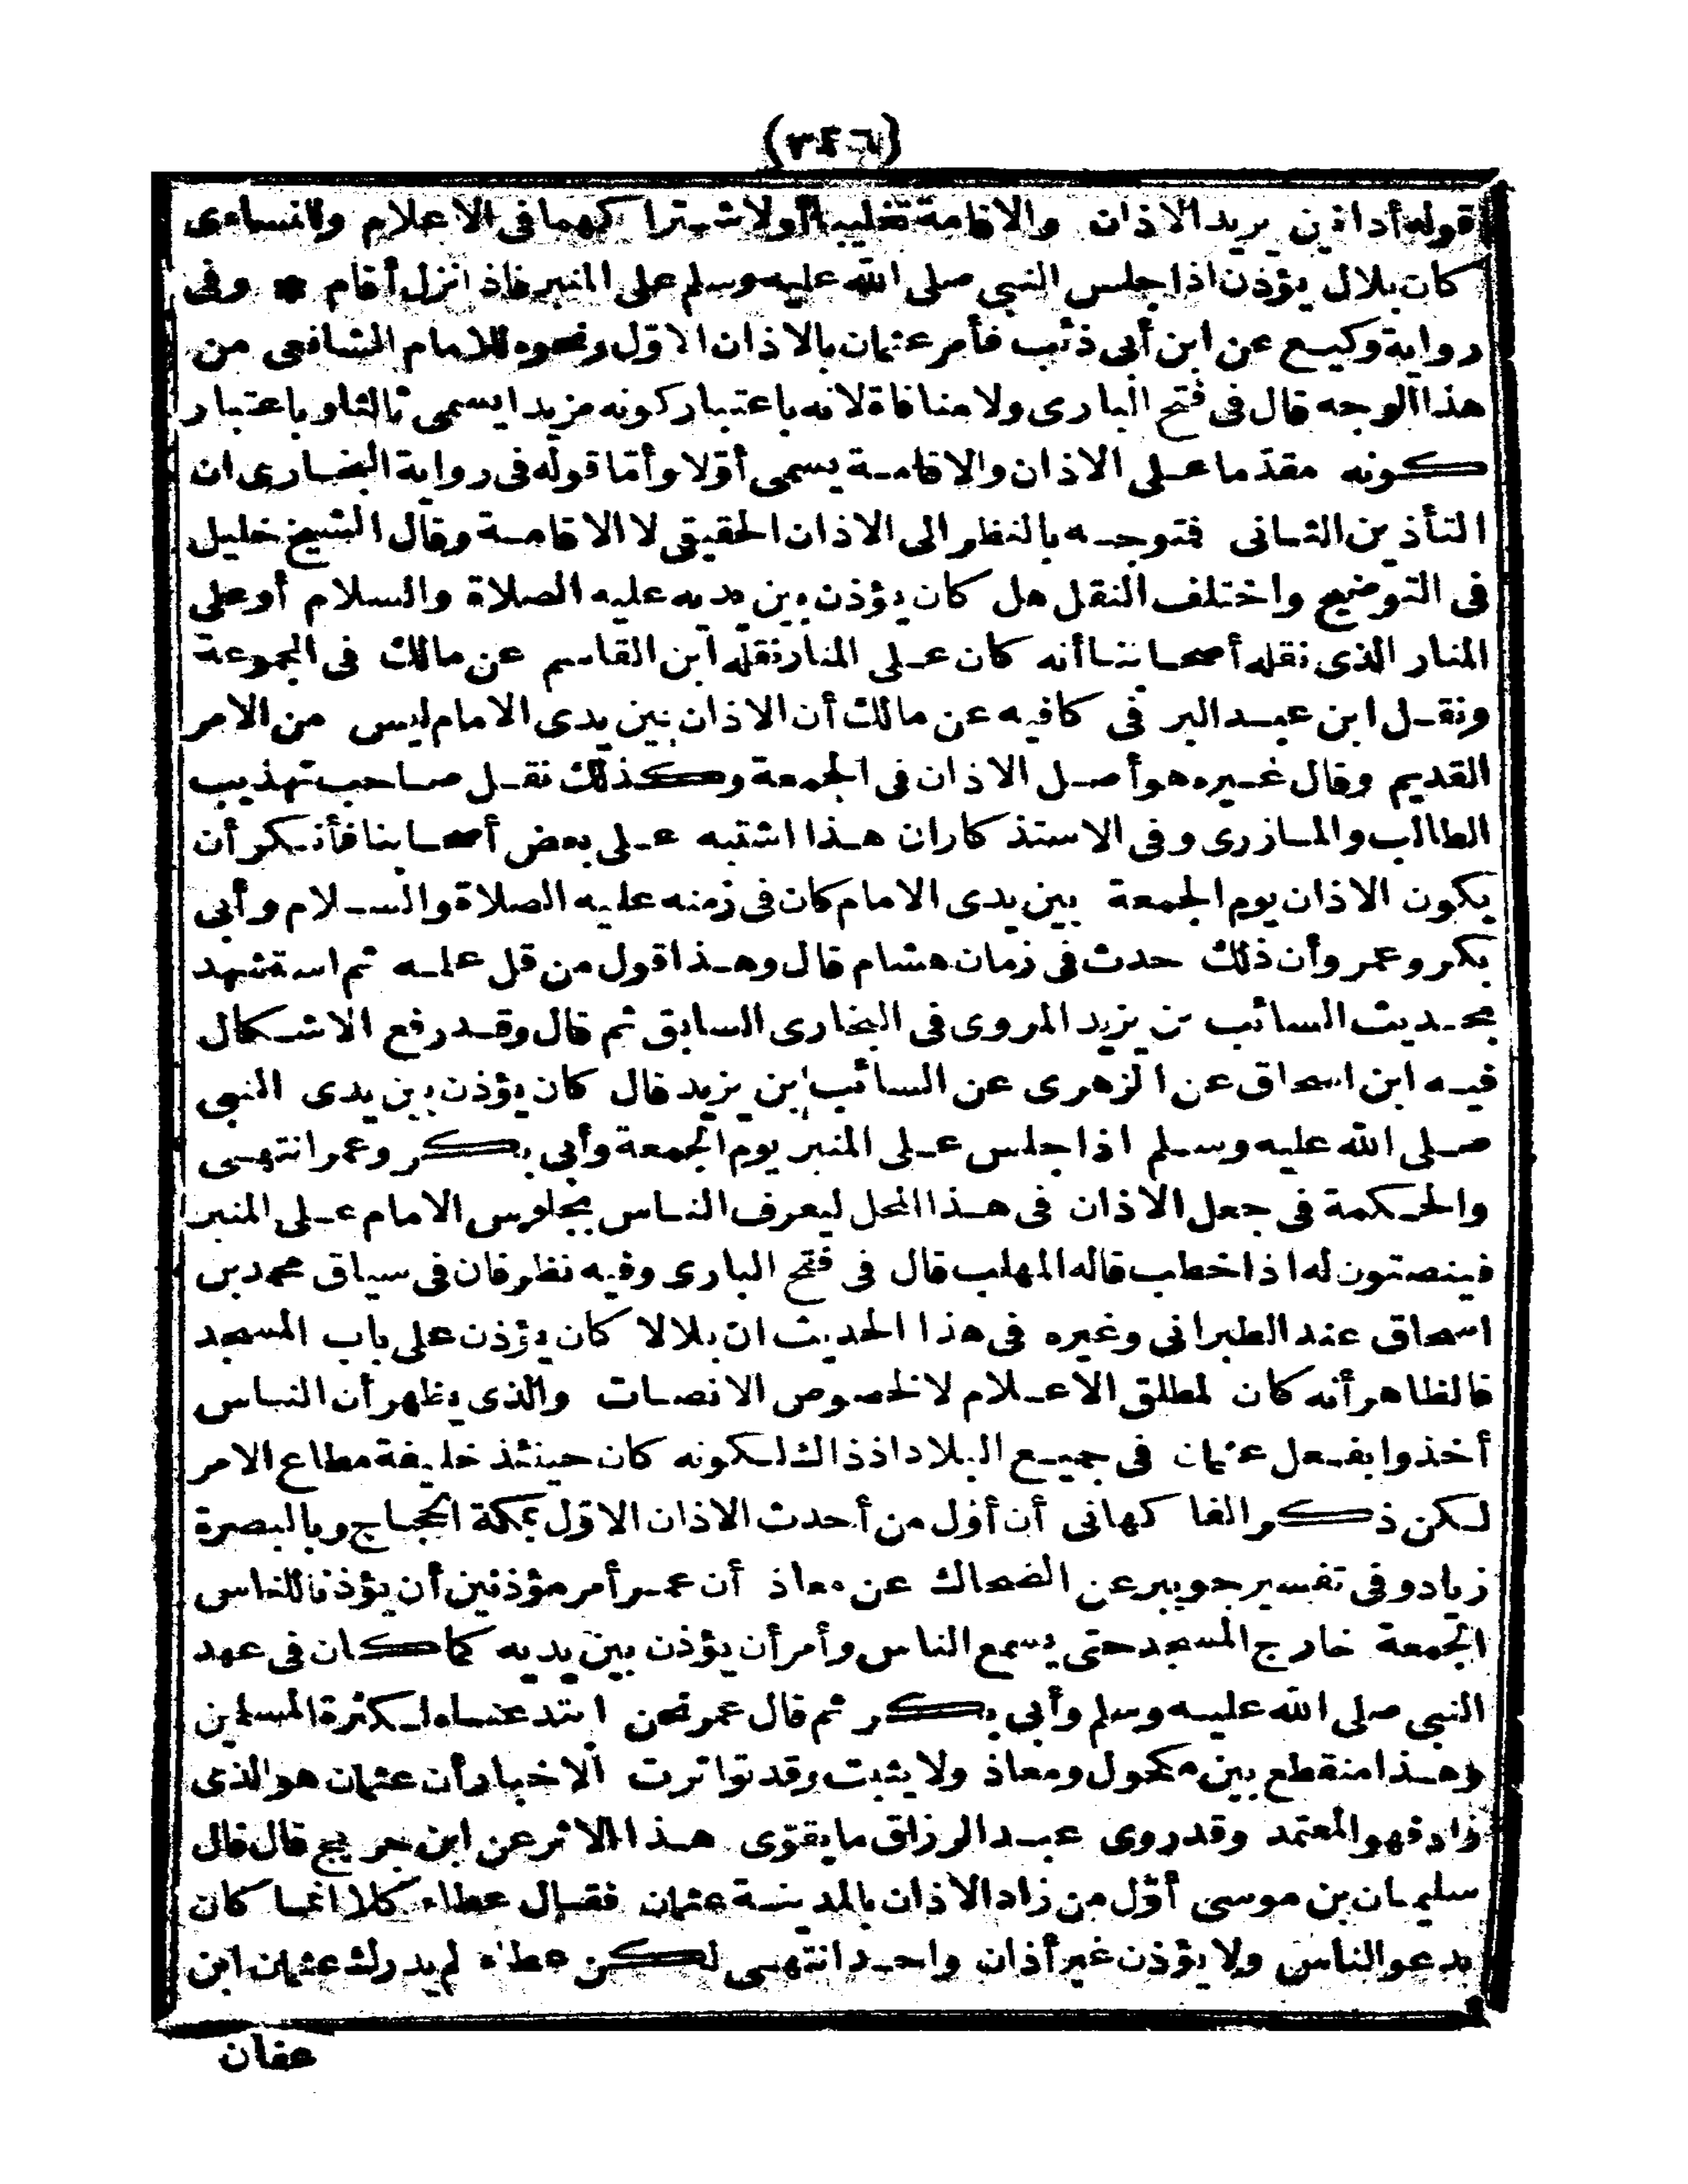 (٣٤٦)
قوله أذانين يريد الاذان والاقامة تغليبا أو لاشتراكهما فى الاعلام وللنساءى
كان بلال يؤذن اذا جلس النبي صلى الله عليه وسلم على المنبر فاذا نزل أقام * وفى
رواية وكيع عن ابن أبى ذئب فأمر عثمان بالاذان الاوّل ونحوه للامام الشافعى من
هذا الوجه قال فى فتح البارى ولا منافاة لانه باعتبار كونه مزيدا يسمى ثالثا وباعتبار
كونه مقدّما على الاذان والاقامة يسمى أوّلا وأمّا قوله فى رواية البخارى ان
التأذين الثانى فتوجه بالنظر الى الاذان الحقيقى لا الاقامة وقال الشيخ خليل
فى التوضيح واختلف النقل هل كان يؤذن بين يديه عليه الصلاة والسلام أو على
المنار الذى نقله أصحابنا أنه كان على المنار نقله ابن القاسم عن مالك فى المجموعة
ونقل ابن عبد البر فى كافيه عن مالك أن الاذان بين يدى الامام ليس من الامر
القديم وقال غيره هو أصل الاذان فى الجمعة وكذلك نقل صاحب تهذيب
الطالب والمازرى وفى الاستذكار ان هذا اشتبه على بعض أصحابنا فأنكر أن
يكون الاذان يوم الجمعة بين يدى الامام كان فى زمنه عليه الصلاة والسلام وأبى
بكر وعمر وأن ذلك حدث فى زمان هشام قال وهذا قول من قل علمه ثم استشهد
بحديث السائب بن يزيد المروى فى البخارى السابق ثم قال وقد رفع الاشكال
فيه ابن اسحاق عن الزهرى عن السائب بن يزيد قال كان يؤذن بين يدى النبي
صلى الله عليه وسلم اذا جلس على المنبر يوم الجمعة وأبي بكر وعمر انتهى
والحكمة فى جعل الاذان فى هذا المحل ليعرف الناس بجلوس الامام على المنبر
فينصتون له اذا خطب قاله المهلب قال فى فتح البارى وفيه نظر فان فى سياق محمد بن
اسحاق عند الطبرانى وغيره فى هذا الحديث ان بلالا كان يؤذن على باب المسجد
فالظاهر أنه كان لمطلق الاعلام لا لخصوص الانصات والذى يظهر أن الناس
أخذوا بفعل عثمان فى جميع البلاد اذ ذاك لكونه كان حينئذ خليفة مطاع الامر
لكن ذكر الفاكهانى أن أوّل من أحدث الاذان الاوّل بمكة الحجاج وبالبصرة
زياد وفى تفسير جويبر عن الضحاك عن معاذ أن عمر أمر مؤذنين أن يؤذنا للناس
الجمعة خارج المسجد حتى يسمع الناس وأمر أن يؤذن بين يديه كما كان فى عهد
النبي صلى الله عليه وسلم وأبي بكر ثم قال عمر نحن ابتدعناه لكثرة المسلمين
وهذا منقطع بين مكحول ومعاذ ولا يثبت وقد تواترت الاخبار أن عثمان هو الذى
زاد فهو المعتمد وقد روى عبد الرزاق ما يقوّى هذا الاثر عن ابن جريج قال قال
سليمان بن موسى أوّل من زاد الاذان بالمدينة عثمان فقال عطاء كلا انما كان
يدعو الناس ولا يؤذن غير أذان واحد انتهى لكن عطاء لم يدرك عثمان ابن
عفان